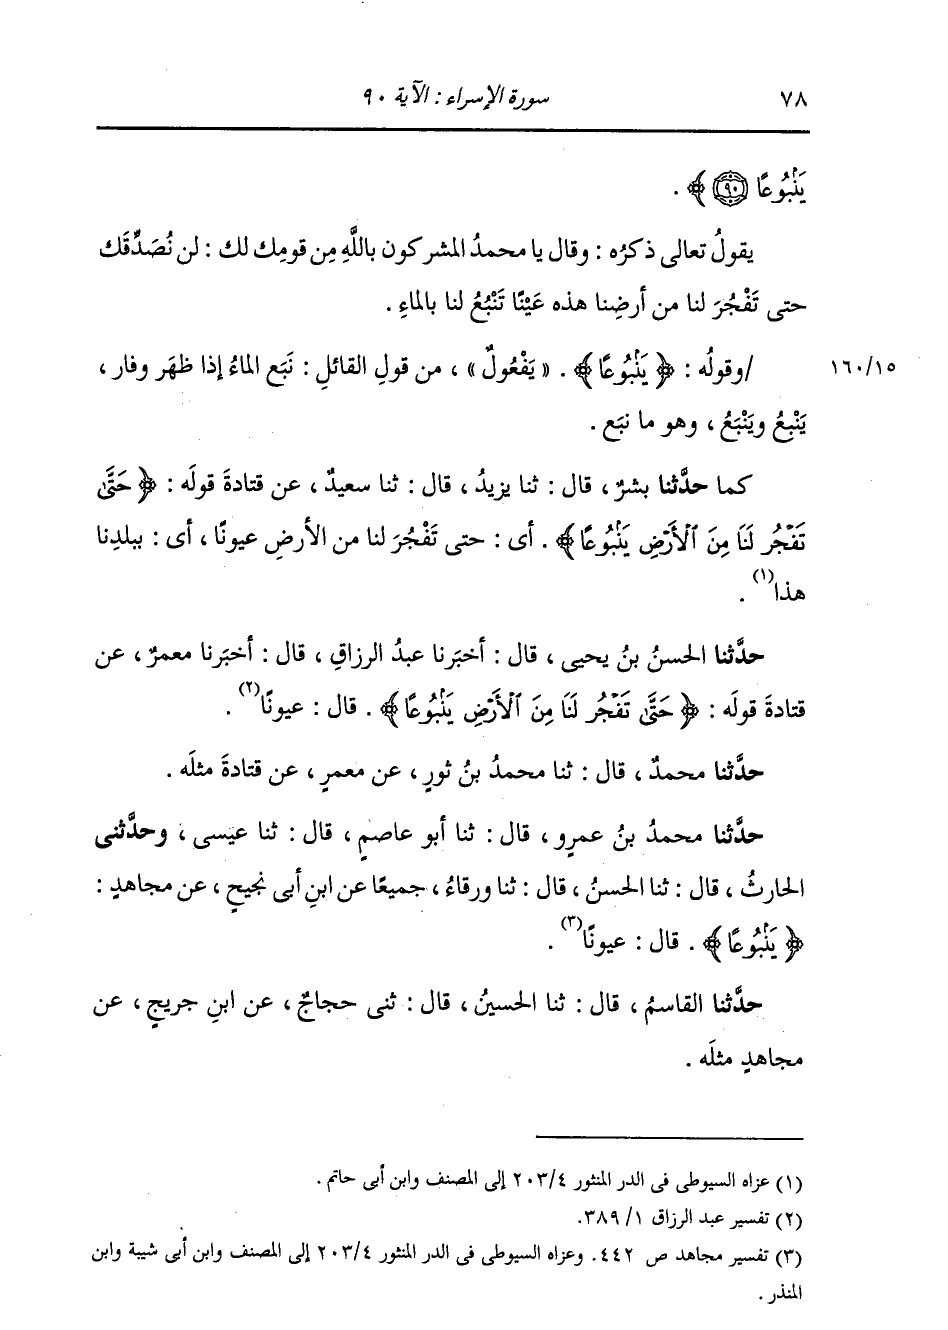 ٧٨ سورة الإسراء : الآية ٩٠
يَنۢبُوعًا ۝٩٠ ﴾ .
يقولُ تعالى ذكرُه : وقال يا محمدُ المشركون باللَّهِ مِن قومِك لك : لن نُصَدِّقَك
حتى تَفْجُرَ لنا من أرضِنا هذه عَيْنًا تَنْبُعُ لنا بالماءِ .
١٦٠/١٥ /وقولُه : ﴿ يَنۢبُوعًا ﴾ . « يَفْعُولٌ » ، من قولِ القائلِ : نَبَع الماءُ إذا ظهَر وفار ،
يَنْبِعُ ويَنْبَعُ ، وهو ما نبَع .
كما حدَّثنا بشرٌ ، قال : ثنا يزيدُ ، قال : ثنا سعيدٌ ، عن قتادةَ قولَه : ﴿ حَتَّىٰ
تَفْجُرَ لَنَا مِنَ ٱلْأَرْضِ يَنۢبُوعًا ﴾ . أى : حتى تَفْجُرَ لنا من الأرضِ عيونًا ، أى : ببلدِنا
هذا(١) .
حدَّثنا الحسنُ بنُ يحيى ، قال : أخبَرنا عبدُ الرزاقِ ، قال : أخبَرنا معمرٌ ، عن
قتادةَ قولَه : ﴿ حَتَّىٰ تَفْجُرَ لَنَا مِنَ ٱلْأَرْضِ يَنۢبُوعًا ﴾ . قال : عيونًا(٢) .
حدَّثنا محمدٌ ، قال : ثنا محمدُ بنُ ثورٍ ، عن معمرٍ ، عن قتادةَ مثلَه .
حدَّثنا محمدُ بنُ عمرٍو ، قال : ثنا أبو عاصمٍ ، قال : ثنا عيسى ، وحدَّثنى
الحارثُ ، قال : ثنا الحسنُ ، قال : ثنا ورقاءُ ، جميعًا عن ابنِ أبى نجيحٍ ، عن مجاهدٍ :
﴿ يَنۢبُوعًا ﴾ . قال : عيونًا(٣) .
حدَّثنا القاسمُ ، قال : ثنا الحسينُ ، قال : ثنى حجاجٌ ، عن ابنِ جريجٍ ، عن
مجاهدٍ مثلَه .
(١) عزاه السيوطى فى الدر المنثور ٢٠٣/٤ إلى المصنف وابن أبى حاتم .
(٢) تفسير عبد الرزاق ١/ ٣٨٩.
(٣) تفسير مجاهد ص ٤٤٢. وعزاه السيوطى فى الدر المنثور ٢٠٣/٤ إلى المصنف وابن أبى شيبة وابن
المنذر .